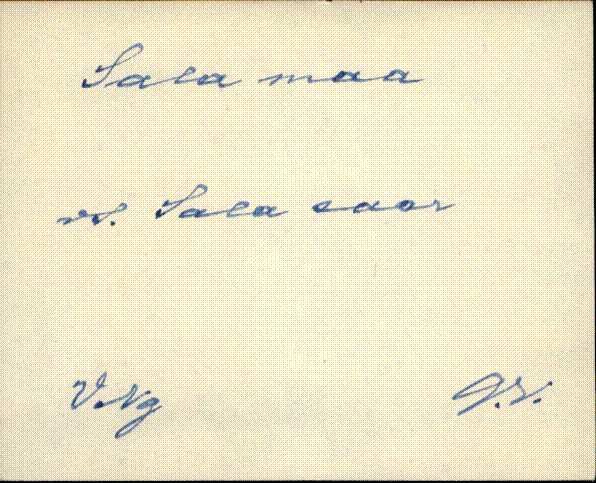 Sala maa
vt. Sala saar
V. Ng